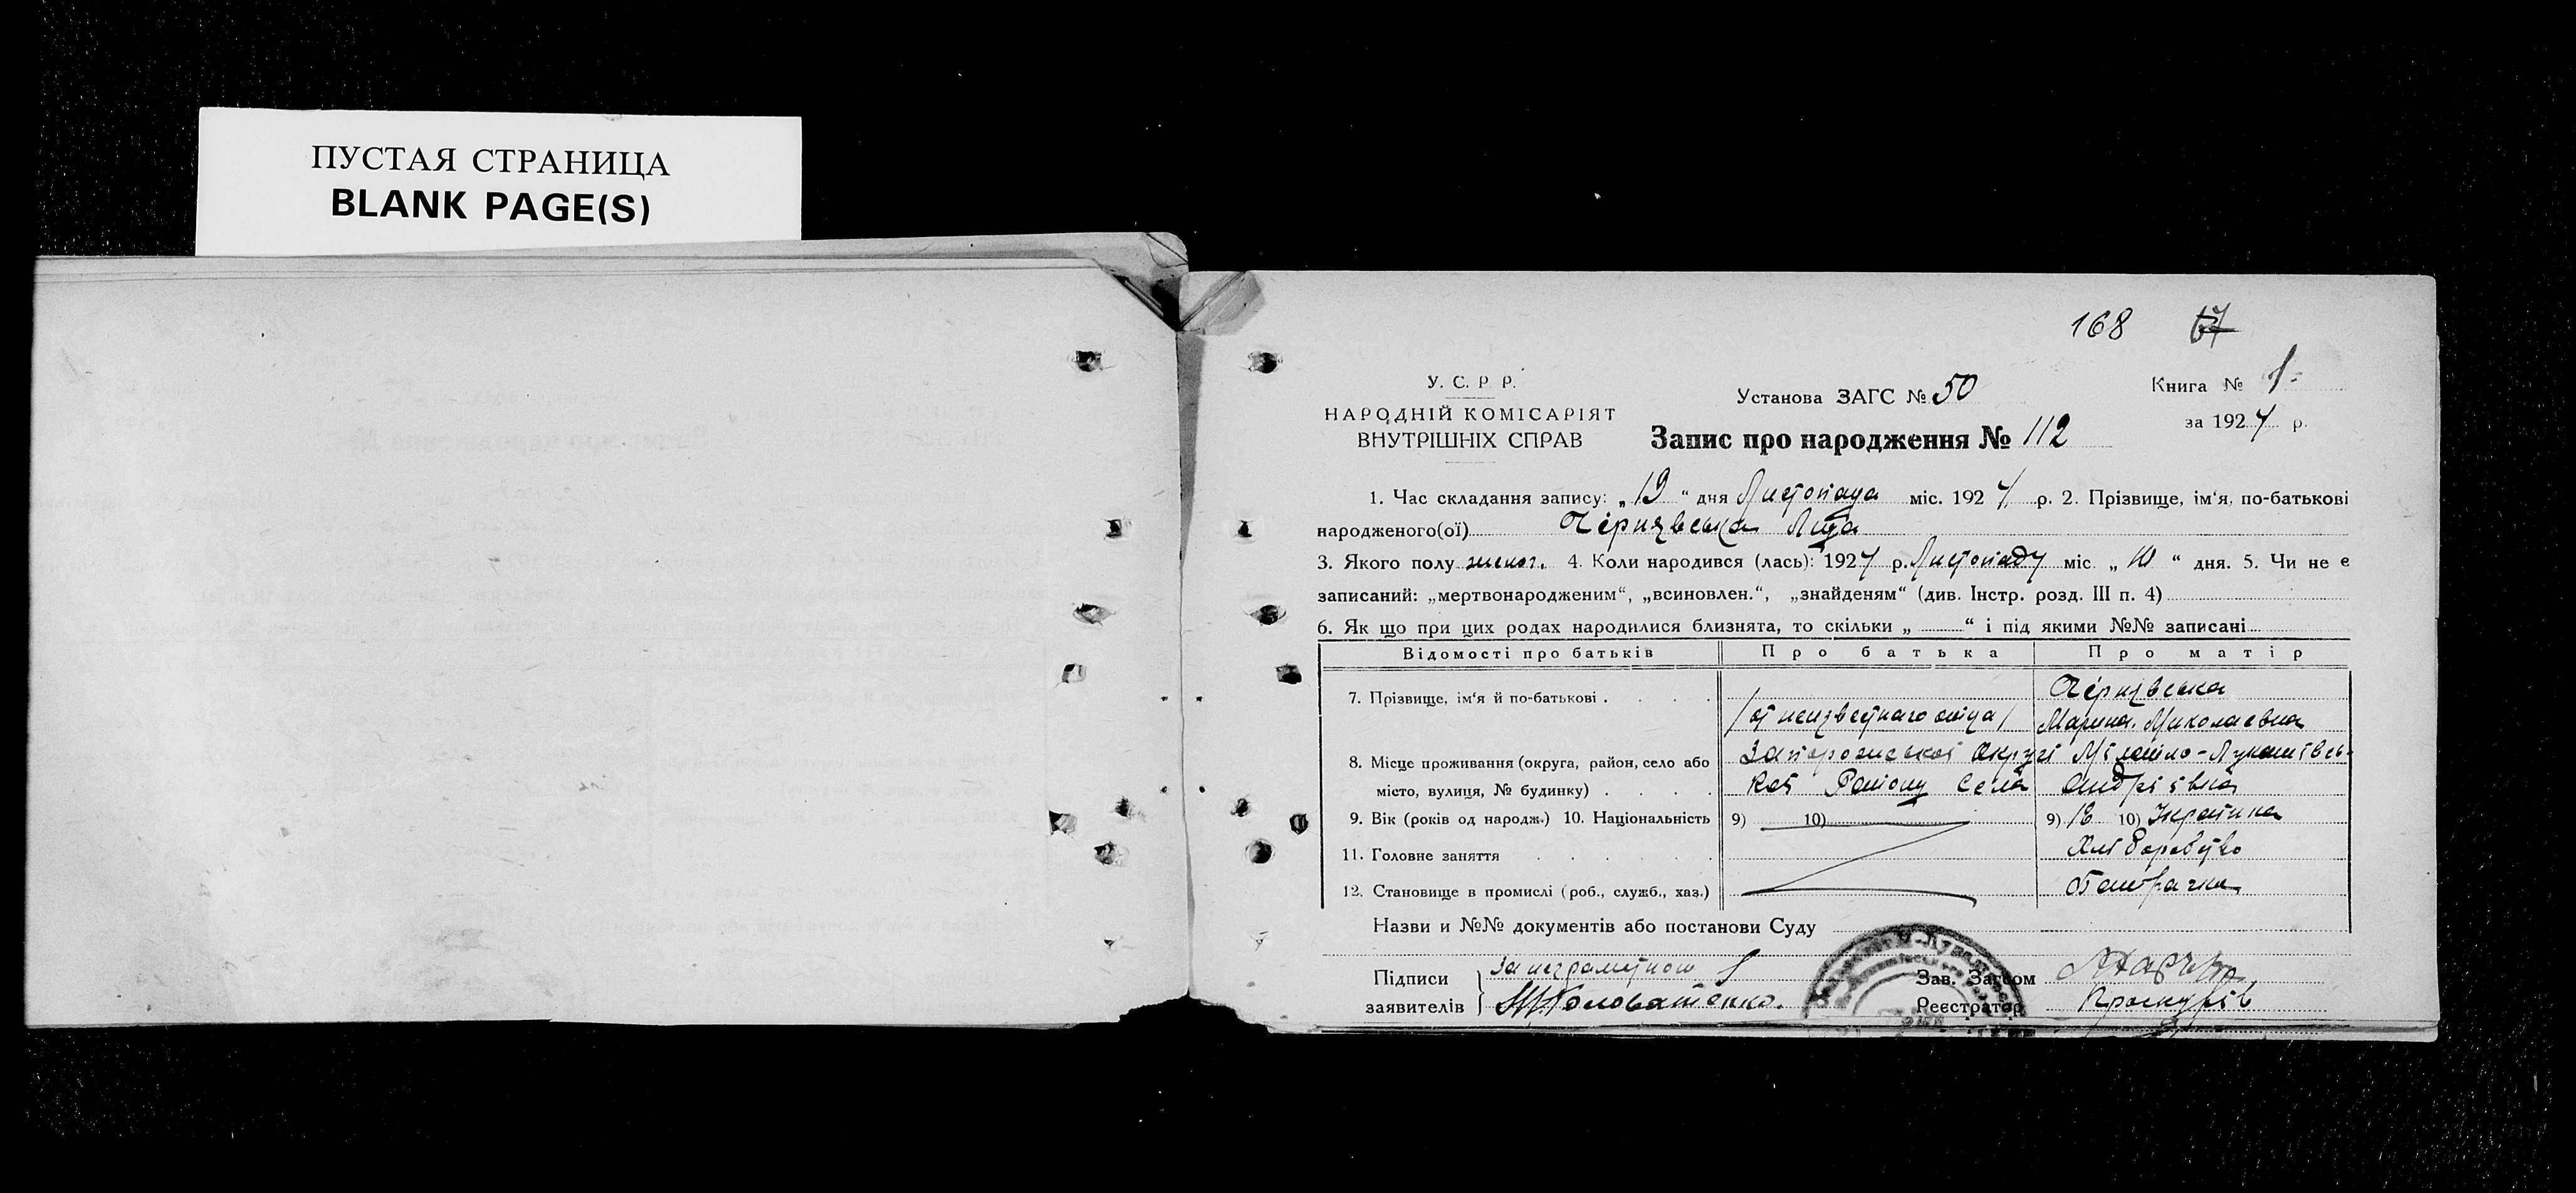 ПУСТАЯ СТРАНИЦА
BLANK PAGE(S)
168 67
У. С. Р. Р.
НАРОДНІЙ КОМІСАРІЯТ
ВНУТРІШНІХ СПРАВ
Установа ЗАГС № 50
Книга № 1
за 1927 р.
Запис про народження № 112
1. Час складання запису: „19“ дня Листопада міс. 1927 р. 2. Прізвище, ім‘я, по-батькові
народженого(ої) Чернявська Лида
3. Якого полу женог. 4. Коли народився (лась): 1927 р. Листопаду міс. „10“ дня. 5. Чи не є
записаний: „мертвонародженим“, „всиновлен.“, „знайденям“ (див. Інстр. розд. III п. 4)
6. Як що при цих родах народилися близнята, то скільки „ “ і під якими №№ записані
Відомості про батьків Про батька Про матір
7. Прізвище, ім‘я й по-батькові . . . . Чернявська
/от неизвестнаго отца/ Марина Миколаевна
8. Місце проживання (округа, район, село або Запорожськоі Округі Міхайло-Лукашівсь-
місто, вулиця, № будинку) . . . . коі Раіону Села Андріівка
9. Вік (років од народж.) 10. Національність 9) 10) 9) 18 10) Украінка
11. Головне заняття . . . . . Хліборобство
12. Становище в промислі (роб., служб., хаз.) Батрачка
Назви и №№ документів або постанови Суду
Підписи
заявителів
За неграмотною
Головатенко.
Зав. Загсом
Реєстратор